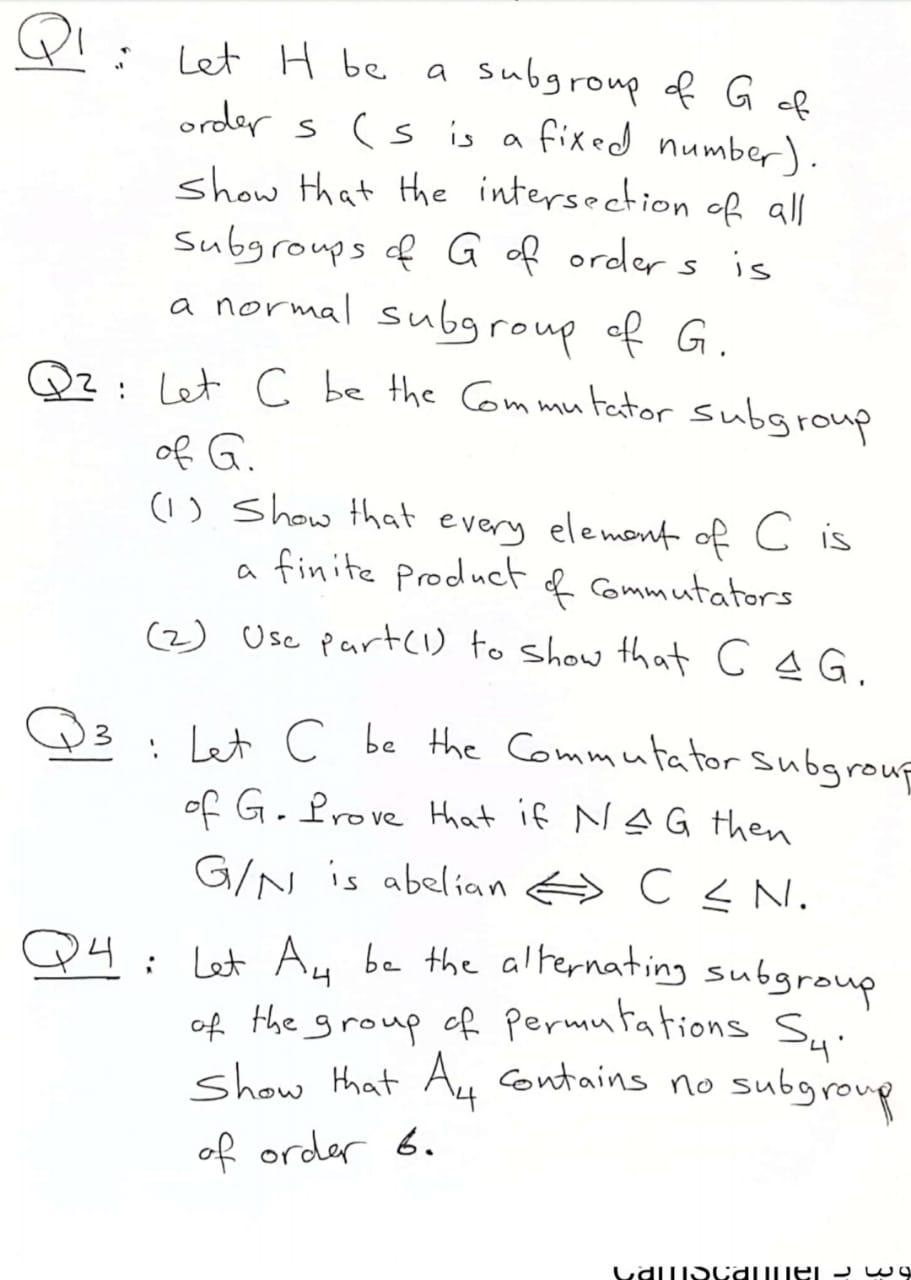 Q1: Let H be a subgroup of G of
order s (s is a fixed number).
Show that the intersection of all
subgroups of G of order s is
a normal subgroup of G.
Q2: Let C be the Commutator subgroup
of G.
(1) Show that every element of C is
a finite product of commutators
(2) Use part(1) to show that C ⊴ G.
Q3: Let C be the Commutator subgroup
of G. Prove that if N ⊴ G then
G/N is abelian ⟺ C ≤ N.
Q4: Let A₄ be the alternating subgroup
of the group of permutations S₄.
Show that A₄ contains no subgroup
of order 6.